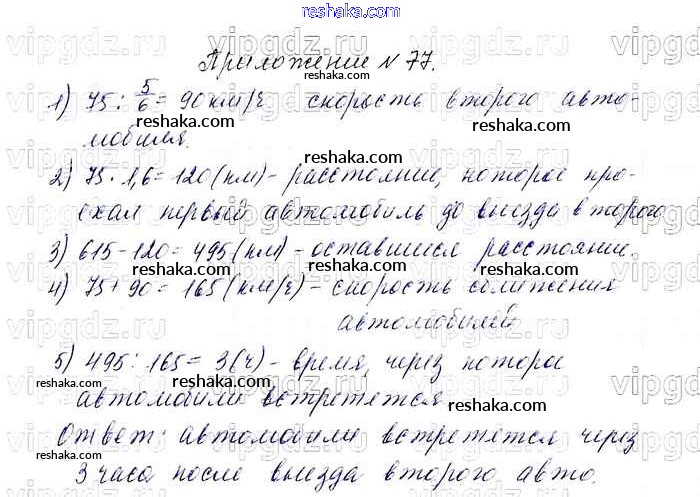 Приложение № 77.
1) 75 : 5/6 = 90 км/ч скорость второго авто-
мобиля.
2) 75 · 1,6 = 120 (км) - расстояние, которое про-
ехал первый автомобиль до выезда второго
3) 615 - 120 = 495 (км) - оставшиеся расстояние.
4) 75 + 90 = 165 (км/ч) - скорость сближения
автомобилей
5) 495 : 165 = 3 (ч) - время, через которое
автомобили встретется
Ответ: автомобили встретется через
3 часа после выезда второго авто.